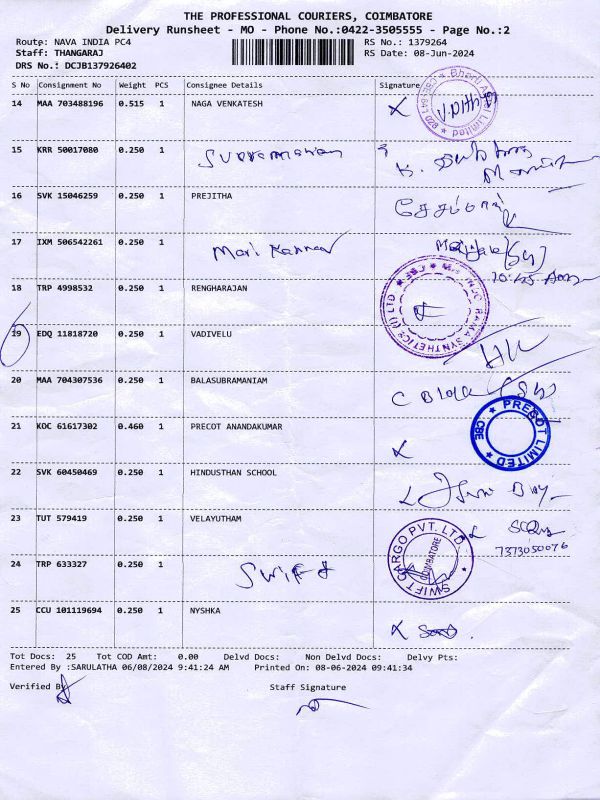 THE PROFESSIONAL COURIERS, COIMBATORE
Delivery Runsheet - MO - Phone No.:0422-3505555 - Page No.:2
Route: NAVA INDIA PC4 RS No.: 1379264
Staff: THANGARAJ RS Date: 08-Jun-2024
DRS No.: DCJB137926402
S No Consignment No Weight PCS Consignee Details Signature
14 MAA 703488196 0.515 1 NAGA VENKATESH
Bharti Limited
15 KRR 50017080 0.250 1 Subramanian
K.
16 SVK 15046259 0.250 1 PREJITHA
17 IXM 506542261 0.250 1 Mari Kannan
10:45
18 TRP 4998532 0.250 1 RENGHARAJAN
SYNTHETICS (I) LTD
19 EDQ 11818720 0.250 1 VADIVELU
20 MAA 704307536 0.250 1 BALASUBRAMANIAM C Block
21 KOC 61617302 0.460 1 PRECOT ANANDAKUMAR
PRECOT LIMITED CBE
22 SVK 60450469 0.250 1 HINDUSTHAN SCHOOL
23 TUT 579419 0.250 1 VELAYUTHAM
7373050076
24 TRP 633327 0.250 1 Swift
SWIFT CARGO PVT. LTD COIMBATORE
25 CCU 101119694 0.250 1 NYSHKA
Tot Docs: 25 Tot COD Amt: 0.00 Delvd Docs: Non Delvd Docs: Delvy Pts:
Entered By :SARULATHA 06/08/2024 9:41:24 AM Printed On: 08-06-2024 09:41:34
Verified By Staff Signature